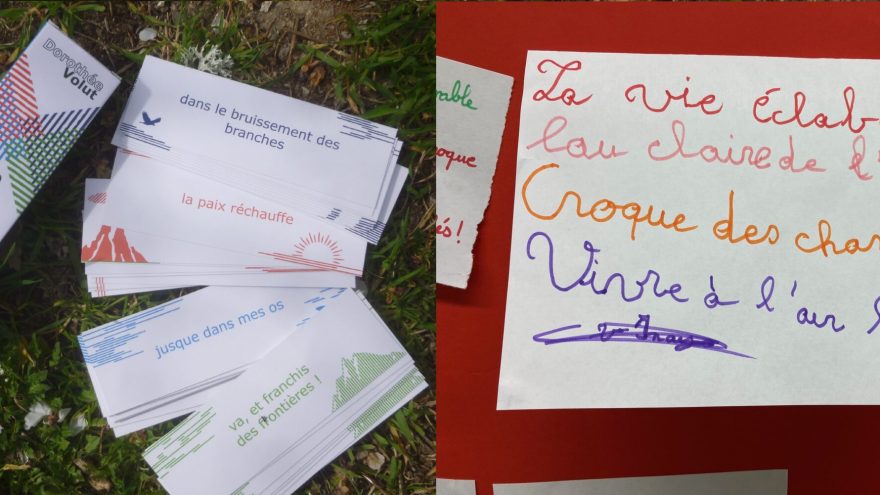 Dorothée
Volut
dans le bruissement des
branches
la paix réchauffe
jusque dans mes os
va, et franchis
des frontières !
La vie éclab
l'au claire de l'
Croque des char
Vivre à l'air